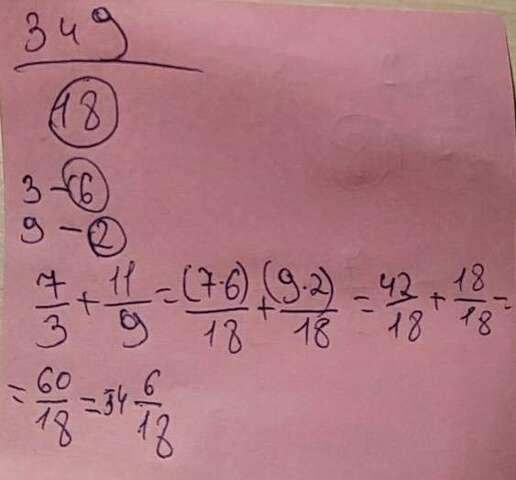 3 и 9
18
3 - 6
9 - 2
7/3 + 11/9 = (7·6)/18 + (9·2)/18 = 42/18 + 18/18 =
= 60/18 = 6/18